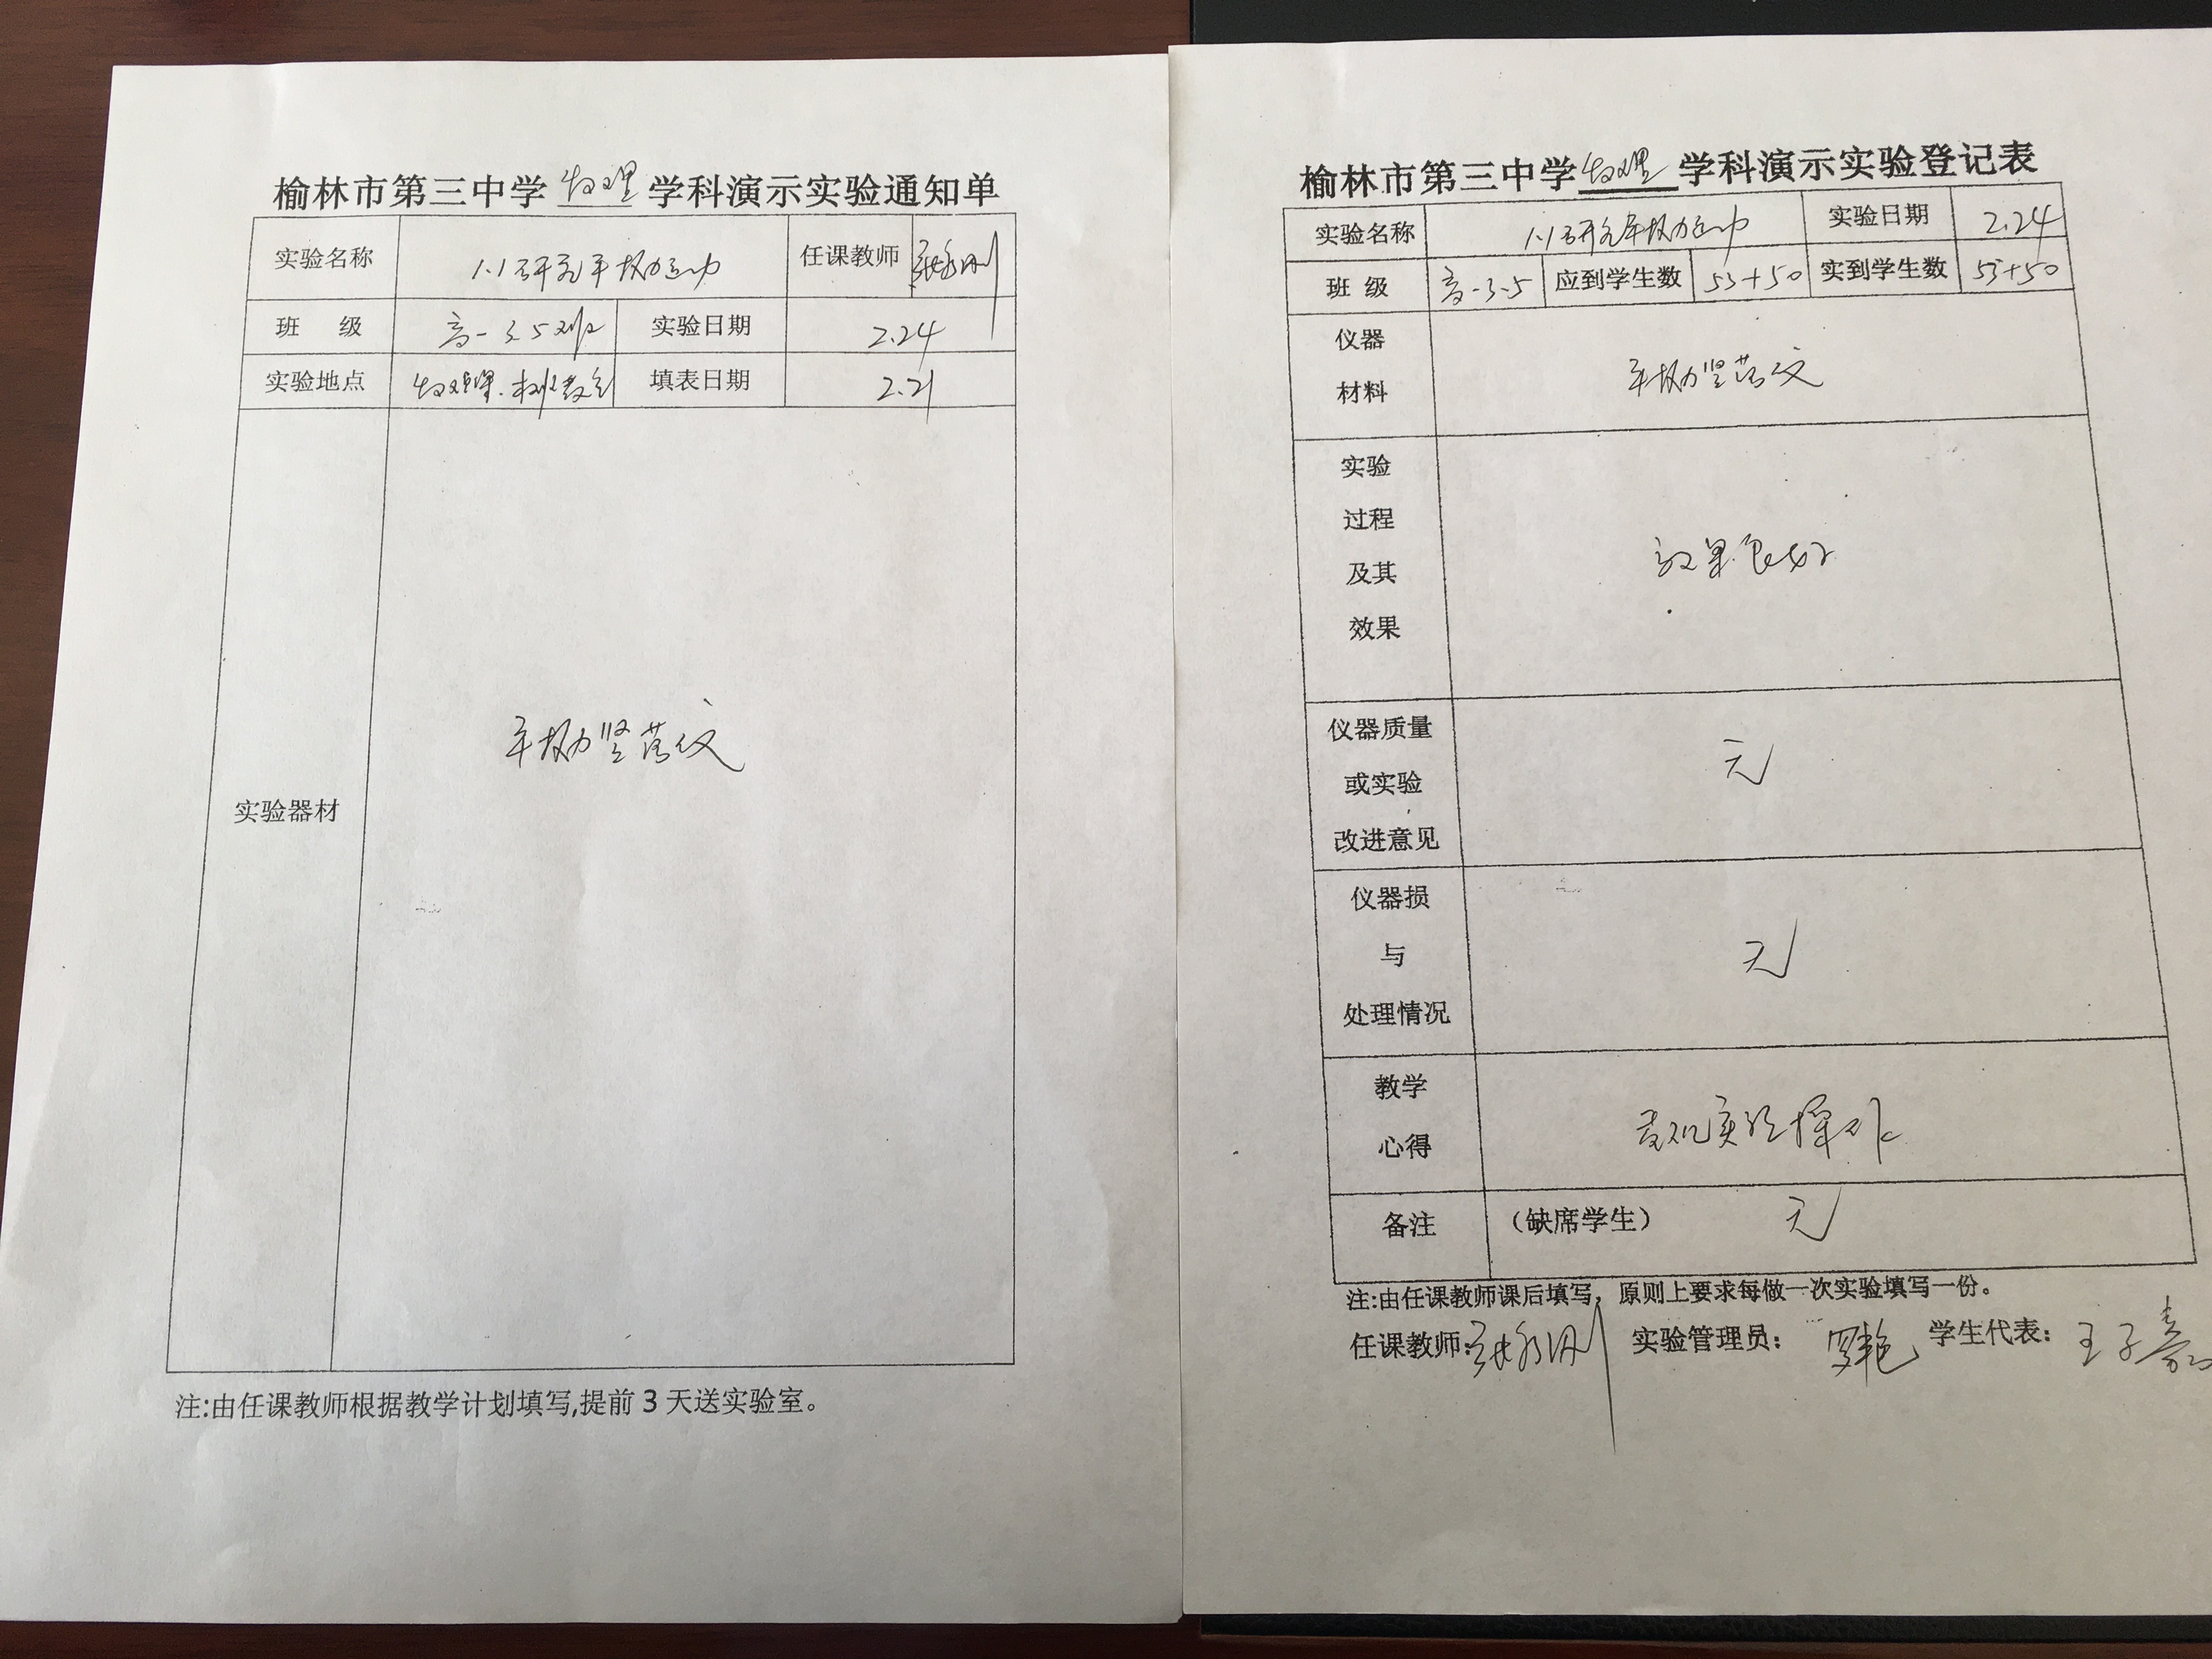 榆林市第三中学 物理 学科演示实验通知单
实验名称 1.1研究平抛运动 任课教师
班 级 高一3.5班 实验日期 2.24
实验地点 物理课.本班教室 填表日期 2.21
实验器材 平抛竖落仪
注:由任课教师根据教学计划填写,提前3天送实验室。
榆林市第三中学物理学科演示实验登记表
实验名称 1.1研究平抛运动 实验日期 2.24
班 级 高一3.5 应到学生数 53+50 实到学生数 53+50
仪器
材料
平抛竖落仪
实验
过程
及其
效果
效果良好
仪器质量
或实验
改进意见
无
仪器损
与
处理情况
无
教学
心得
直观实验
备注 (缺席学生) 无
注:由任课教师课后填写,原则上要求每做一次实验填写一份。
任课教师: 实验管理员: 罗艳 学生代表: 王子嘉